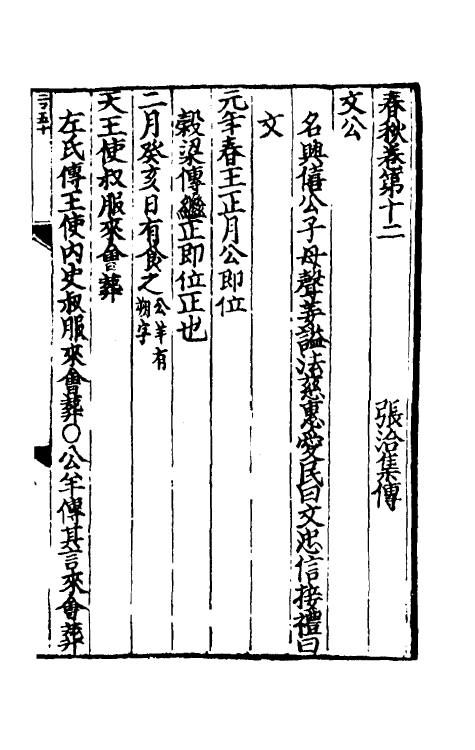 春秋卷第十二 張洽集傳
文公
名興僖公子母聲姜諡法慈惠愛民曰文忠信接禮曰
文
元年春王正月公即位
穀梁傳繼正即位正也
二月癸亥日有食之公羊有朔字
天王使叔服來會葬
左氏傳王使內史叔服來會葬○公羊傳其言來會葬